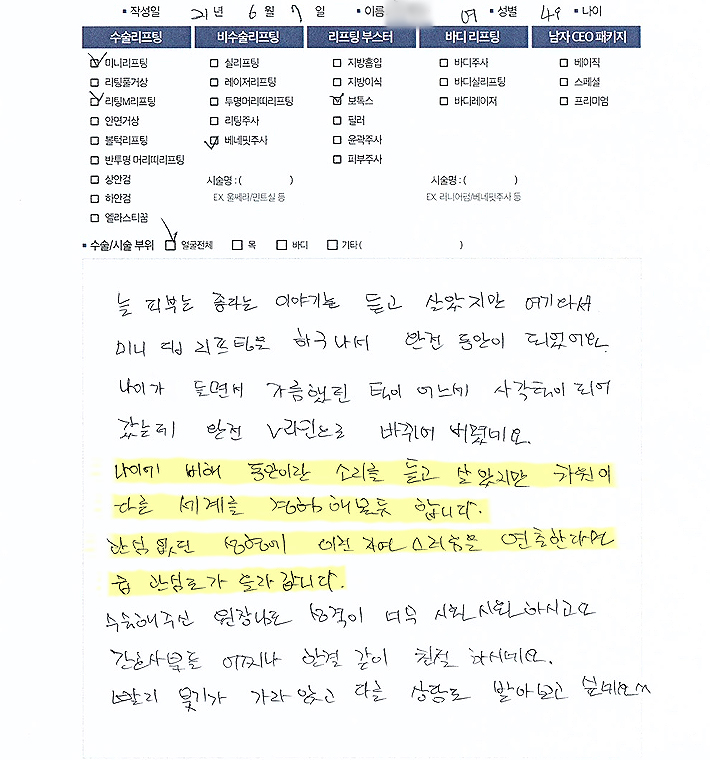 ▪ 작성일 21 년 6 월 7 일 ▪ 이름 여 ▪ 성별 49 ▪ 나이
수술리프팅 비수술리프팅 리프팅 부스터 바디 리프팅 남자 CEO 패키지
미니리프팅 실리프팅 지방흡입 바디주사 베이직
리팅풀거상 레이저리프팅 지방이식 바디실리프팅 스페셜
리팅M리프팅 투명머리띠리프팅 보톡스 바디레이저 프리미엄
안면거상 리팅주사 필러
볼턱리프팅 베네핏주사 윤곽주사
반투명 머리띠리프팅 피부주사
상안검 시술명 : ( ) 시술명 : ( )
하안검 EX. 울쎄라/민트실 등 EX. 리니어펌/베네핏주사 등
엘라스티꿈
▪ 수술/시술 부위 얼굴전체 목 바디 기타 ( )
늘 피부는 좋다는 이야기를 듣고 살았지만 여기와서
미니 리프팅을 하구나서 완전 동안이 되었어요.
나이가 들면서 갸름했던 턱이 어느새 사각턱이 되어
갔는데 완전 V라인으로 바뀌어 버렸네요.
나이에 비해 동안이란 소리를 듣고 살았지만 차원이
다른 세계를 경험해보듯 합니다.
관심 없던 성형에 이런 자연스러움을 연출한다면
급 관심도가 올라갑니다.
수술해주신 원장님도 성격이 너무 시원시원하시고요
간호사분들 어찌나 한결 같이 친절 하시네요.
빨리 붓기가 가라앉고 다른 상담도 받아보고 싶네요^^